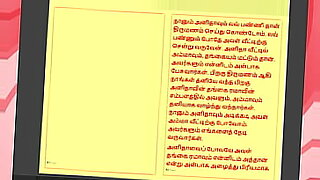 நானும் அனிதாவும் லவ் பண்ணி தான்
திருமணம் செய்து கொண்டோம். லவ்
பண்ணும் போதே அவள் வீட்டிற்கு
சென்று வருவேன். அனிதா வீட்டில்
அம்மாவும், தங்கையும் மட்டும் தான்.
அவர்களும் என்னிடம் அன்பாக
பேசுவார்கள். பிறகு திருமணம் ஆகி
நாங்கள் தனியே வந்த பிறகு
அனிதாவின் தங்கை ரமாவின்
சம்பளத்தில் அவளும், அம்மாவும்
தனியாக வாழ்ந்து வந்தார்கள்.
நானும் அனிதாவும் அடிக்கடி அவள்
அம்மா வீட்டிற்கு போவோம்.
அவர்களும் எங்களைத் தேடி
வருவார்கள்.
அனிதாவைப் போலவே அவள்
தங்கை ரமாவும் என்னிடம் அத்தான்
என்று அன்பாக அழைத்து பிரியமாக